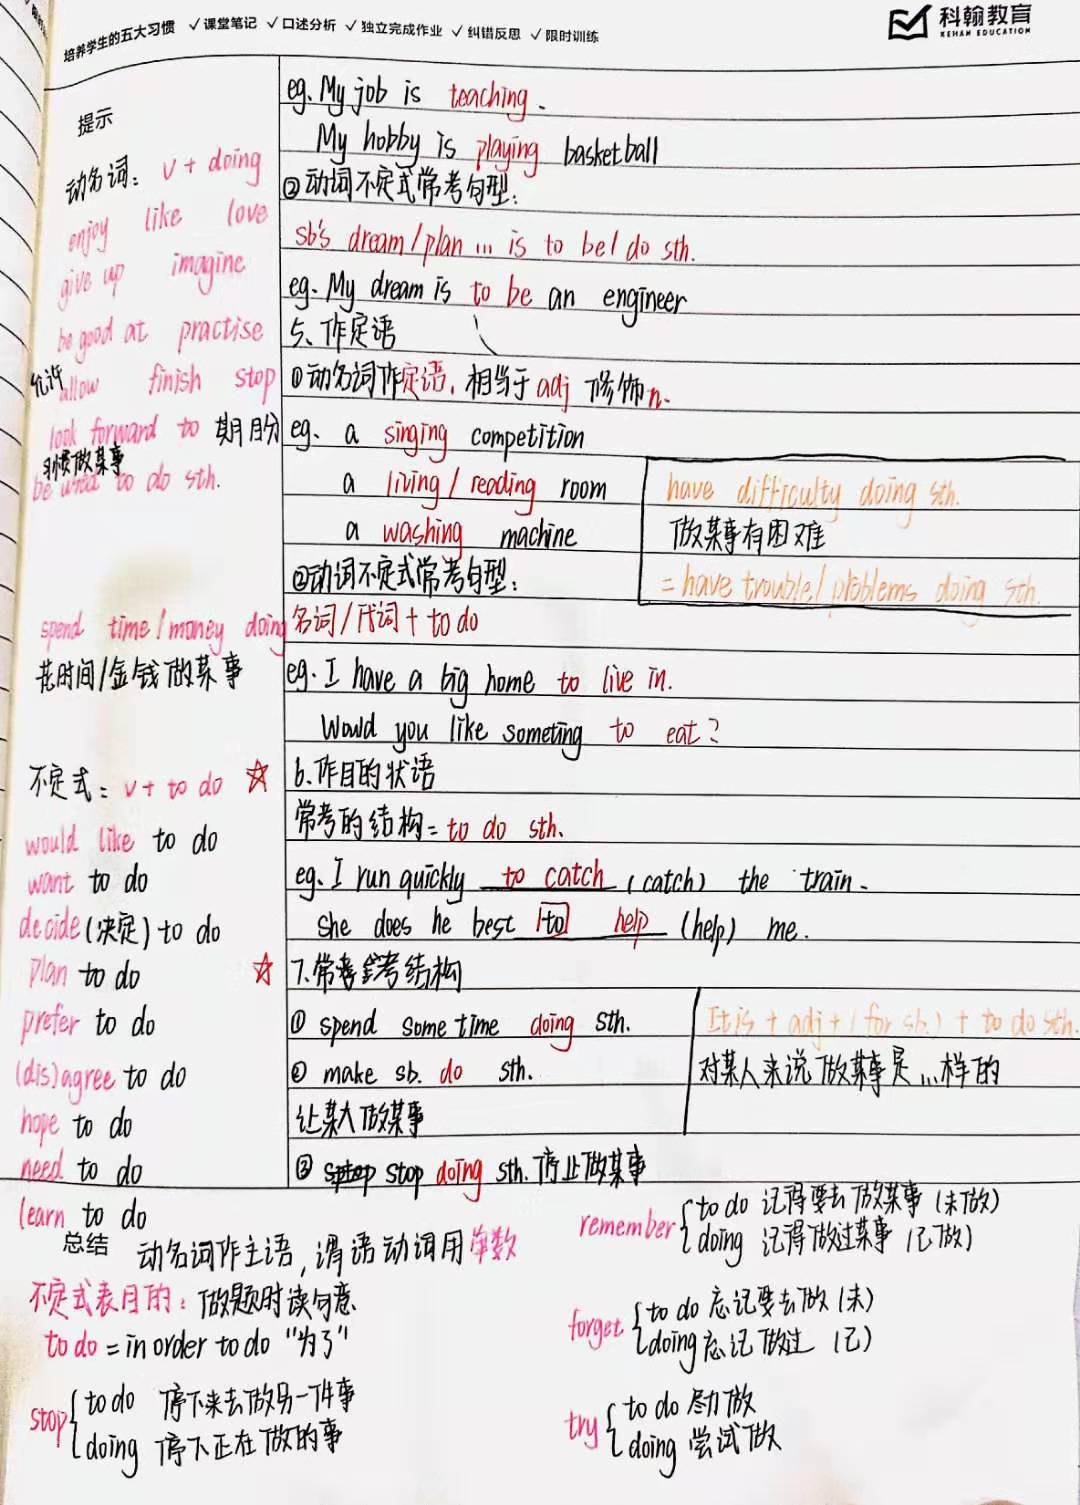 培养学生的五大习惯 ✓课堂笔记 ✓口述分析 ✓独立完成作业 ✓纠错反思 ✓限时训练
科翰教育
KEHAN EDUCATION
提示
动名词: v + doing
enjoy like love
give up imagine
be good at practise
允许
allow finish stop
look forward to 期盼
习惯做某事
be used to do sth.
spend time/money doing
花时间/金钱做某事
不定式: v + to do ☆
would like to do
want to do
decide(决定) to do
plan to do ☆
prefer to do
(dis)agree to do
hope to do
need to do
learn to do
eg. My job is teaching.
My hobby is playing basketball
②动词不定式常考句型:
sb's dream/plan ... is to be/do sth.
eg. My dream is to be an engineer
5、作定语
①动名词作定语, 相当于adj 修饰n.
eg. a singing competition
a living/reading room
a washing machine
have difficulty doing sth.
做某事有困难
= have trouble/problems doing sth.
②动词不定式常考句型:
名词/代词 + to do
eg. I have a big home to live in.
Would you like someting to eat?
6.作目的状语
常考的结构= to do sth.
eg. I run quickly to catch (catch) the train.
She does he best to help (help) me.
7.常考结构
① spend some time doing sth.
② make sb. do sth.
让某人做某事
③ stop doing sth. 停止做某事
It is + adj + (for sb.) + to do sth.
对某人来说做某事是...样的
总结
动名词作主语, 谓语动词用单数
不定式表目的: 做题时读句意
to do = in order to do "为了"
stop { to do 停下来去做另一件事
doing 停下正在做的事
remember { to do 记得要去做某事 (未做)
doing 记得做过某事 (已做)
forget { to do 忘记要去做 (未)
doing 忘记做过 (已)
try { to do 尽力做
doing 尝试做